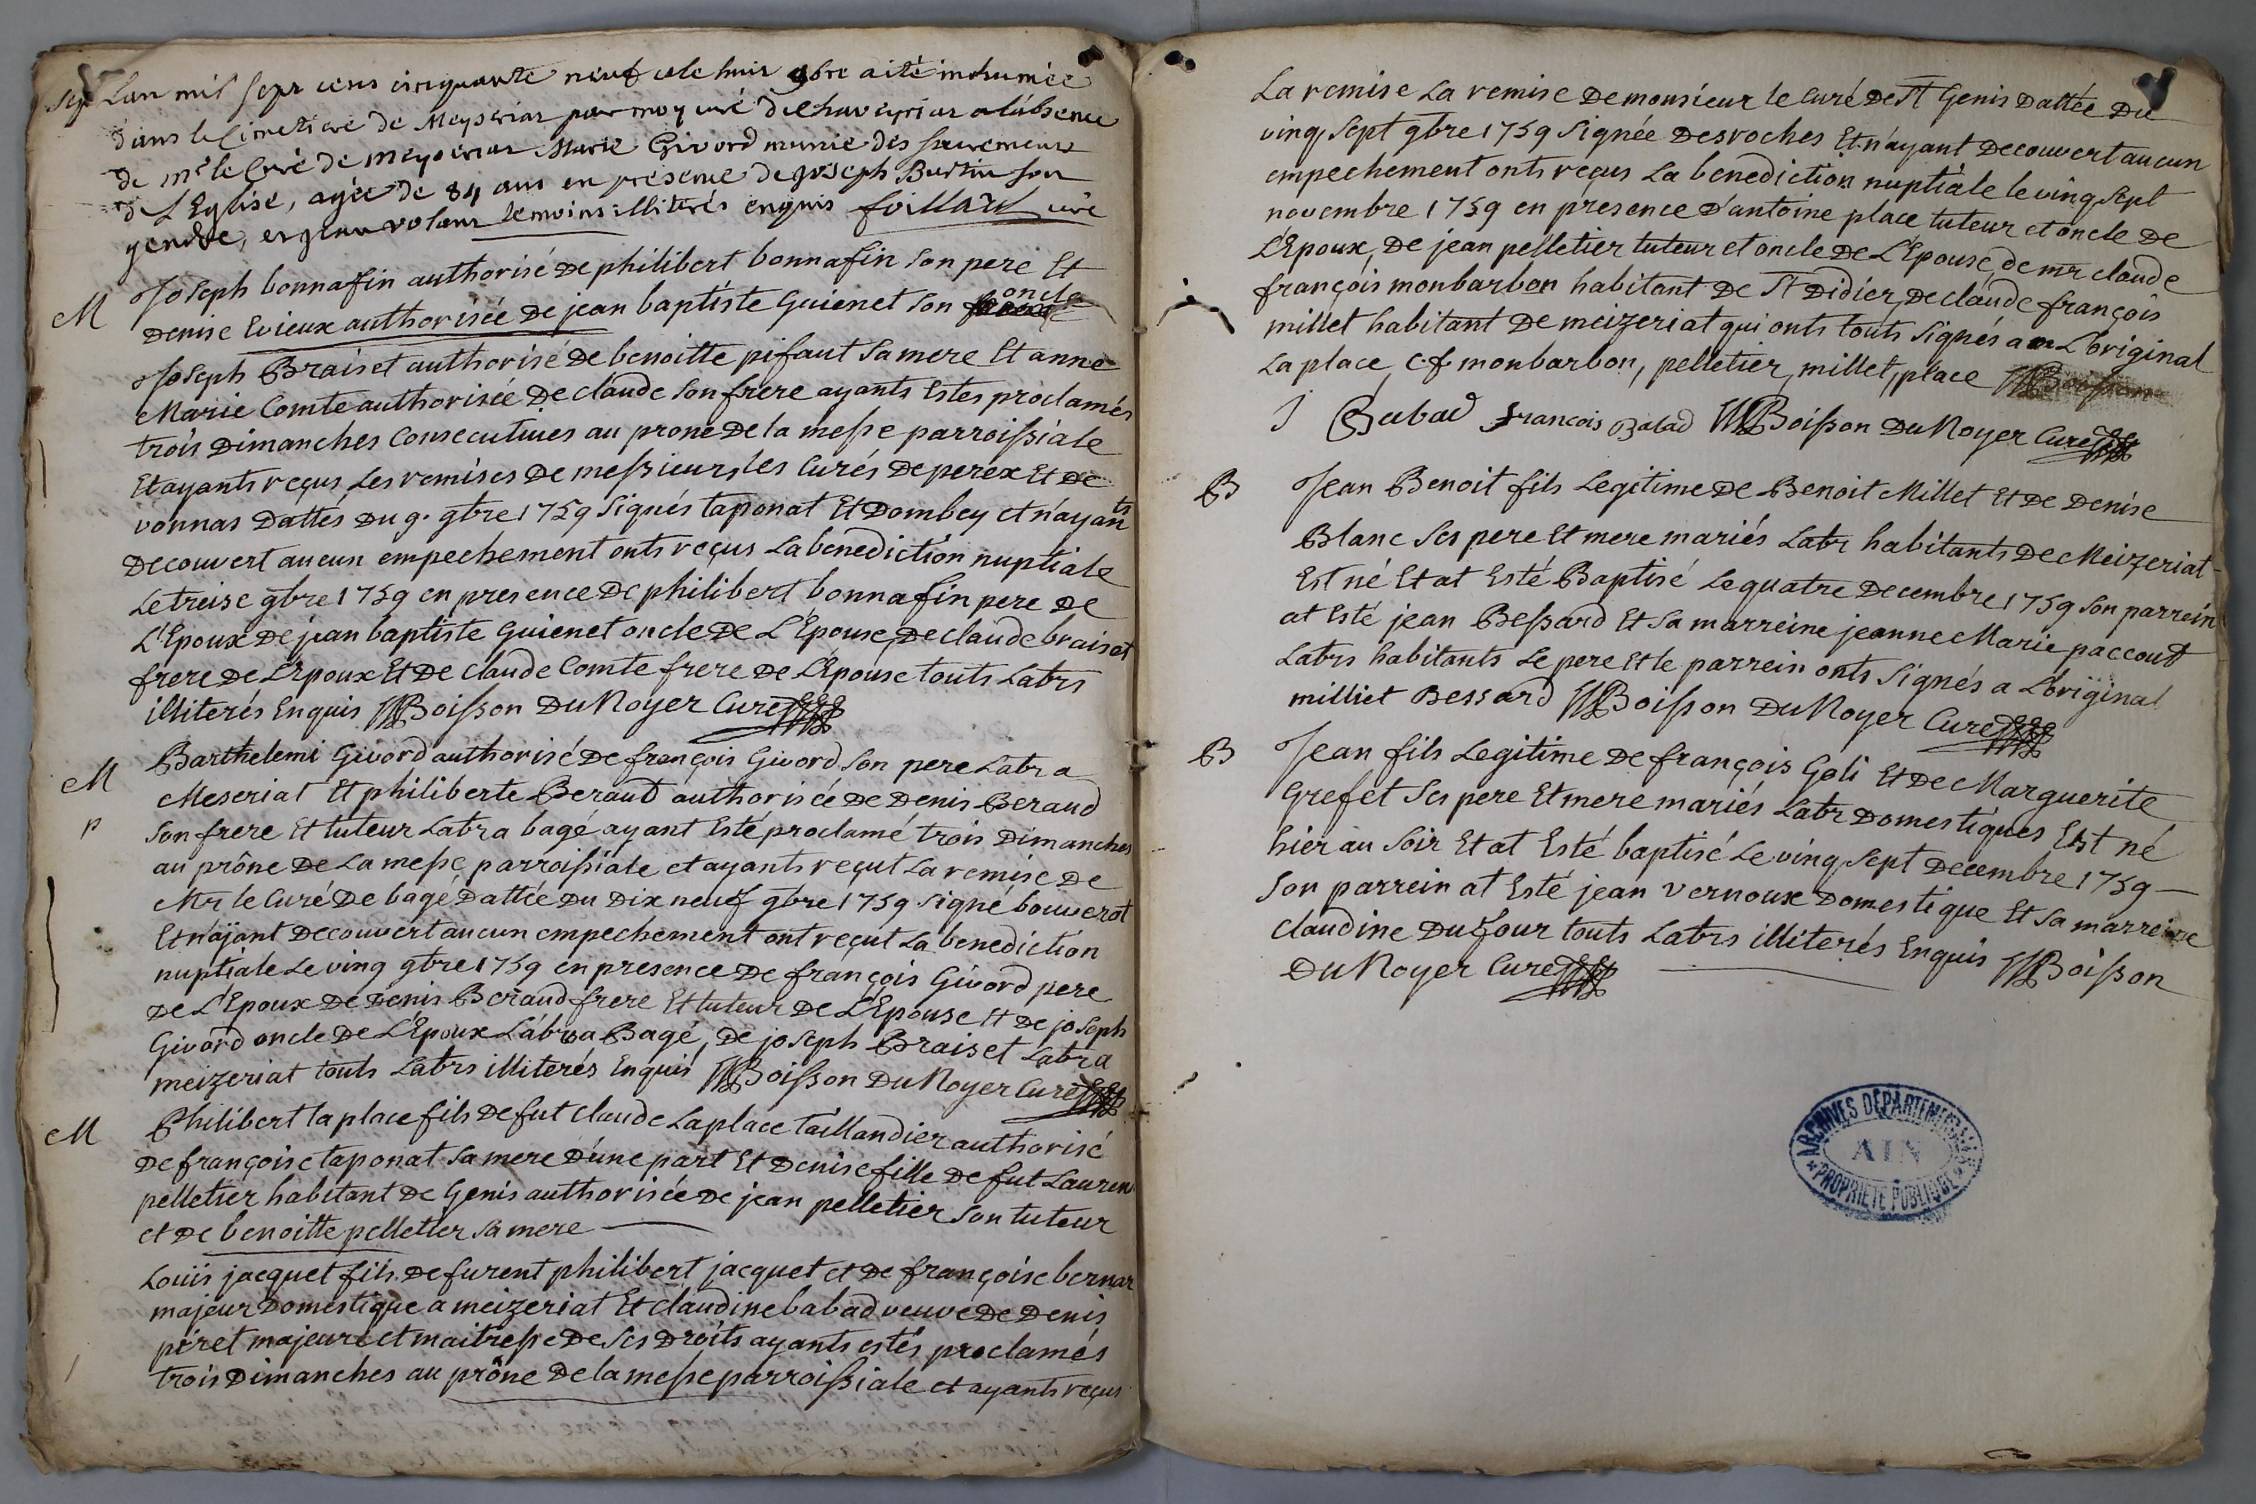 Sep Lan mil sept cens cinquante neuf et le huit 9bre a ité inhumée
dans le Cimetiere de Meyseriat par moy curé de chaveyriat a l'absence
de mr le Curé de meyseriat Marie Givord munie des sacremens
de L'Eglise, agée de 84 ans en presence de joseph Burtin son
gendre, et jean volant temoins illiterés enquis foillard curé
M Joseph bonnafin authorisé De philibert bonnafin son pere Et
Denise Evieux authorisée De jean baptiste Guienet son oncle
Joseph Braiset authorisé De benoitte pifaut sa mere Et anne
Marie Comte authorisée De claude son frere ayants Estes proclamés
trois Dimanches Consecutives au prone De la messe parroissiale
Et ayants reçus Les remises De messieurs les Curés De perex Et De
vonnas Dattés Du 9. 9bre 1759 signés taponat Et Dombey et n'ayants
Decouvert aucun empechement onts reçus La benediction nuptiale
Le treise 9bre 1759 en presence De philibert bonnafin pere De
L'Epoux De jean baptiste Guienet oncle De L'Epouse, De claude braiset
frere De L'Epoux Et De Claude Comte frere De L'Epouse touts Labrs
illiterés Enquis Boisson Du Noyer Curé
M Barthelemi Givord authorisé De françois Givord son pere Labr a
Meseriat Et philiberte Beraud authorisée De Denis Beraud
p son frere Et tuteur Labr a bagé ayant Esté proclamé trois Dimanches
au prône De La messe parroissiale et ayants reçut La remise De
Mr le Curé De bagé Dattée Du Dix neuf 9bre 1759 signé bouverot
Et naÿant Decouvert aucun empechement ont reçut La benediction
nuptiale Le ving 9bre 1759 en presence De françois Givord pere
De L'Epoux De Denis Beraud frere Et tuteur De L'Epouse Et De joseph
Givord oncle De L'Epoux Labr a Bagé, De joseph Braiset Labr a
meizeriat touts Labrs illiterés Enquis Boisson Du Noyer Curé
M Philibert la place fils De fut Claude Laplace taillandier authorisé
De françoise taponat sa mere D'une part Et Denise fille De fut Lauren
pelletier habitant De Genis authorisée De jean pelletier son tuteur
et De benoitte pelletier sa mere
Louis jacquet fils De furent philibert jacquet et De françoise bernar
majeur Domestique a meizeriat Et claudine babad veuve De Denis
peret majeure et maitresse De ses Droits ayants estés proclamés
trois Dimanches au prône De la messe parroissiale et ayants reçus
La remise La remise De monsieur le Curé De St Genis Dattée Du
ving sept 9bre 1759 signée Desroches Et n'ayant Decouvert aucun
empechement onts reçus La benediction nuptiale le ving sept
novembre 1759 en presence D'antoine place tuteur et oncle De
L'Epoux, De jean pelletier tuteur et oncle De L'Epouse, de mr claude
françois monbarbon habitant De St Didier, De claude françois
millet habitant De meizeriat qui onts touts signés a L'original
La place, cf monbarbon, pelletier, millet, place
J Babad francois Balad Boisson Du Noyer Curé
B Jean Benoit fils Legitime De Benoit Millet Et De Denise
Blanc ses pere Et mere mariés Labr habitants De Meizeriat
Est né Et at Esté Baptisé Le quatre Decembre 1759 son parrein
at Esté jean Bessard Et sa marreine jeanne Marie paccout
Labrs habitants Le pere Et le parrein onts signés a L'original
milliet Bessard Boisson Du Noyer Curé
B Jean fils Legitime De françois Goli Et De Marguerite
Grefet ses pere Et mere mariés Labr Domestiques Est né
hier au soir Et at Esté baptisé Le ving sept Decembre 1759
son parrein at Esté jean vernoux Domestique Et sa marreine
claudine Dufour touts Labrs illiterés Enquis Boisson
Du Noyer Curé
ARCHIVES DÉPARTEMENTALES
AIN
PROPRIÉTÉ PUBLIQUE